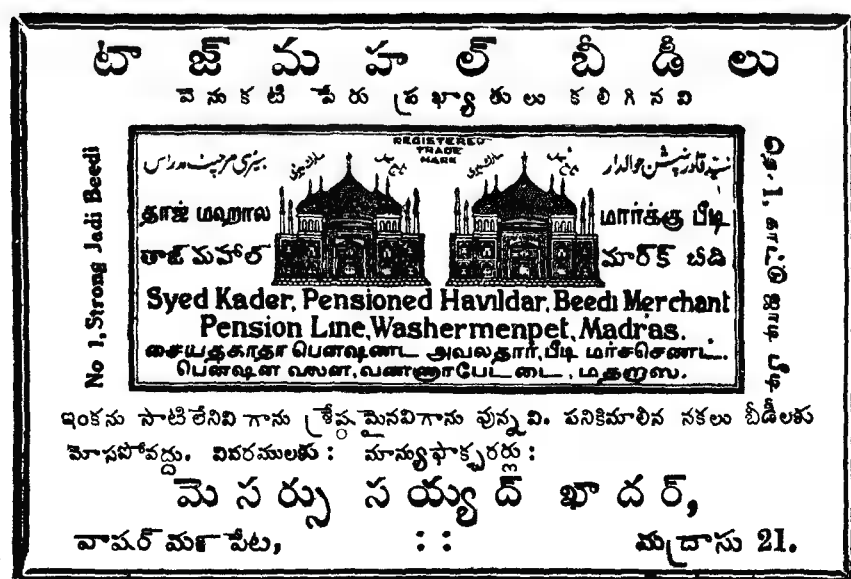 టాజ్ మహల్ బీడీలు
వెనుకటి పేరు ప్రఖ్యాతులు కలిగినవి
No 1, Strong Jadi Beedi
REGISTERED
TRADE
MARK
தாஜ் மஹால
மார்க்கு பீடி
తాజ్ మహాల్
మార్క్ బీడి
Syed Kader, Pensioned Havildar, Beedi Merchant
Pension Line, Washermenpet, Madras.
சையதகாதா பென்ஷண்ட அவலதார், பீடி மர்சசெண்ட்.
பென்ஷன லைன, வண்ணாரபேட்டை, மதறாஸ.
ఇంకను సాటి లేనివి గాను శ్రేష్ఠమైనవిగాను వున్నవి. పనికిమాలిన నకలు బీడీలకు
మోసపోవద్దు. వివరములకు : మాన్యుఫాక్చరర్లు :
మెసర్సు సయ్యద్ ఖాదర్,
వాషర్ మణ పేట, : : మద్రాసు 21.